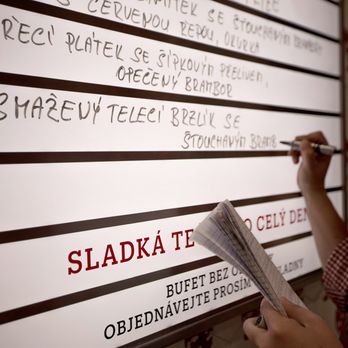 S ČERVENOU ŘEPOU, OKURKA
ŘECÍ PLÁTEK SE ŠÍPKOVÝM PŘELIVEM,
OPEČENÝ BRAMBOR
SMAŽENÝ TELECÍ BRZLÍK SE
ŠŤOUCHANÝM BRAMB
SLADKÁ TE O CELÝ DEN
BUFET BEZ O LADNY
OBJEDNÁVEJTE PROSÍM